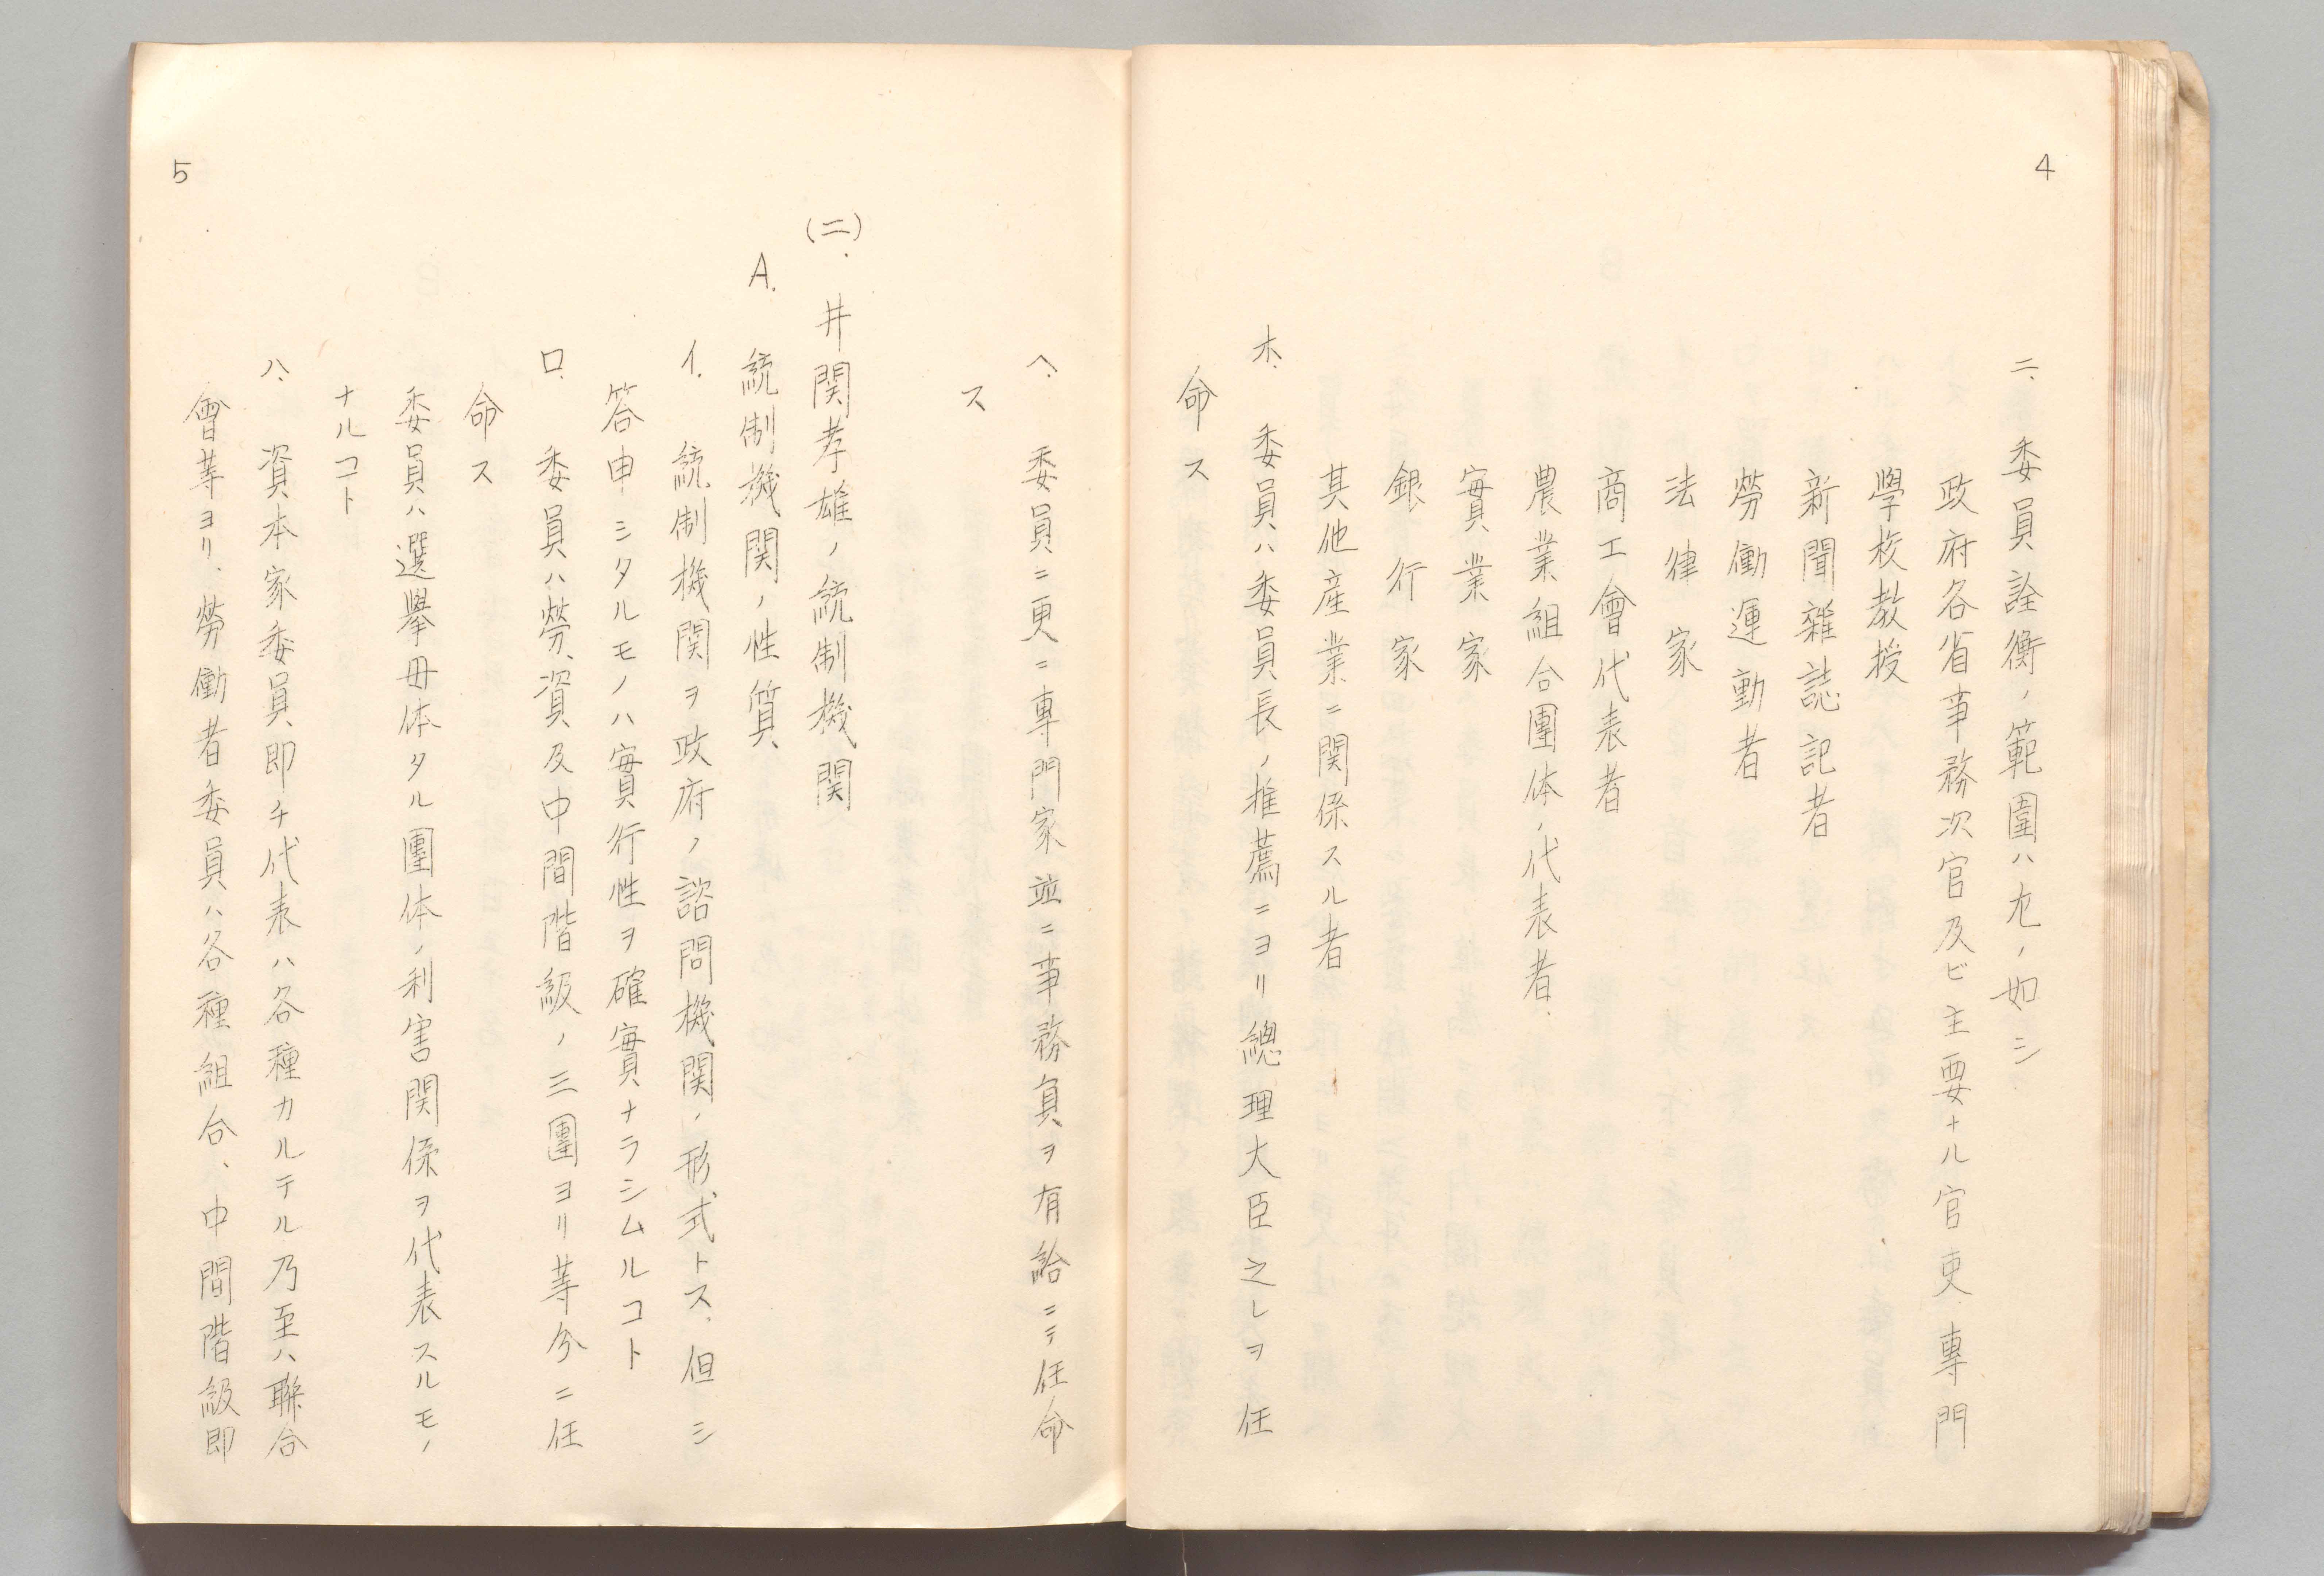 4
ニ.委員詮衡ノ範圍ハ左ノ如シ
政府各省事務次官及ビ主要ナル官吏.專門
學校教授
新聞雜誌記者
勞働運動者
法律家
商工會代表者
農業組合團体ノ代表者.
實業家
銀行家
其他産業ニ関係スル者
ホ.委員ハ委員長ノ推薦ニヨリ總理大臣之レヲ任
命ス
ヘ.委員ニ更ニ專門家並ニ事務員ヲ有給ニテ任命
ス
(二).井関孝雄ノ統制機関
A.統制機関ノ性質
イ.統制機関ヲ政府ノ諮問機関ノ形式トス、但シ
答申シタルモノハ實行性ヲ確實ナラシムルコト
ロ.委員ハ勞、資及中間階級ノ三團ヨリ等分ニ任
命ス
委員ハ選擧母体タル團体ノ利害関係ヲ代表スルモノ
ナルコト
ハ.資本家委員即チ代表ハ各種カルテル乃至ハ聯合
會等ヨリ、勞働者委員ハ各種組合、中間階級即
5